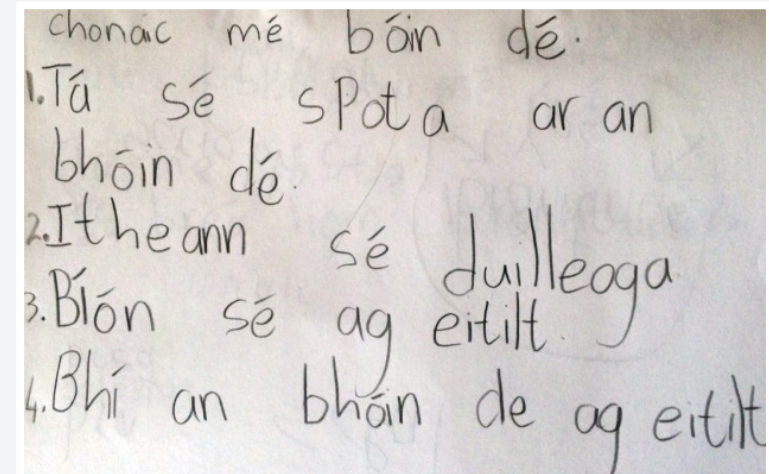 Chonaic mé bóin dé.
1. Tá sé spota ar an
bhóin dé.
2. Itheann sé duilleoga
3. Bíón sé ag eitilt.
4. Bhí an bhóin de ag eitilt